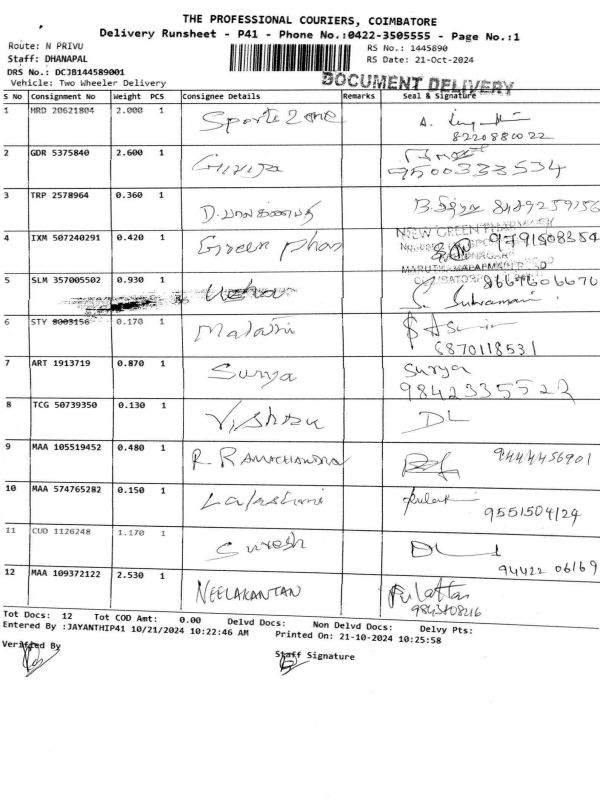 THE PROFESSIONAL COURIERS, COIMBATORE
Delivery Runsheet - P41 - Phone No.:0422-3505555 - Page No.:1
Route: N PRIVU RS No.: 1445890
Staff: DHANAPAL RS Date: 21-Oct-2024
DRS No.: DCJB144589001
Vehicle: Two Wheeler Delivery DOCUMENT DELIVERY
S No Consignment No Weight PCS Consignee Details Remarks Seal & Signature
1 HRD 20621804 2.000 1 Sports Zone A.
8220880022
2 GDR 5375840 2.600 1 Girija
9500333534
3 TRP 2578964 0.360 1 D. 8489259156
4 IXM 507240291 0.420 1 Green phar NEW GREEN PHARMACY
9791508354
5 SLM 357005502 0.930 1 Usha
S. Subramani
6 STY 8003156 0.170 1 Malathi
6870118531
7 ART 1913719 0.870 1 Surya Surya
8 TCG 50739350 0.130 1 Vishnu DL
9 MAA 105519452 0.480 1 R RAMACHANDRA 9444456901
10 MAA 574765282 0.150 1
9551504124
11 CUD 1126248 1.170 1 Suresh DL
94422 06169
12 MAA 109372122 2.530 1 NEELAKANTAN
Tot Docs: 12 Tot COD Amt: 0.00 Delvd Docs: Non Delvd Docs: Delvy Pts:
Entered By :JAYANTHIP41 10/21/2024 10:22:46 AM Printed On: 21-10-2024 10:25:58
Verified By Staff Signature